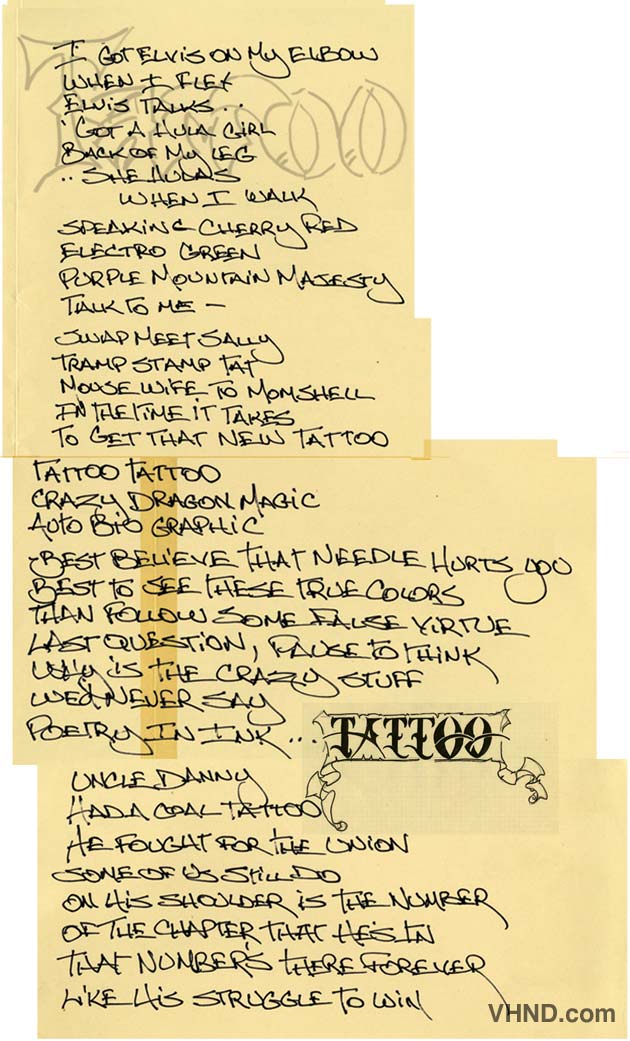 TATTOO
I GOT ELVIS ON MY ELBOW
WHEN I FLEX
ELVIS TALKS..
'GOT A HULA GIRL
BACK OF MY LEG
.. SHE HULAS
WHEN I WALK
SPEAKING CHERRY RED
ELECTRO GREEN
PURPLE MOUNTAIN MAJESTY
TALK TO ME —
SWAP MEET SALLY
TRAMP STAMP TAT
MOUSE WIFE TO MOMSHELL
IN THE TIME IT TAKES
TO GET THAT NEW TATTOO
TATTOO TATTOO
CRAZY DRAGON MAGIC
AUTO BIO GRAPHIC
-BEST BELIEVE THAT NEEDLE HURTS YOU
BEST TO SEE THESE TRUE COLORS
THAN FOLLOW SOME FALSE VIRTUE
LAST QUESTION, PAUSE TO THINK
WHY IS THE CRAZY STUFF
WE'D NEVER SAY
POETRY IN INK ...
TATTOO
UNCLE DANNY
HAD A COAL TATTOO
HE FOUGHT FOR THE UNION
SOME OF US STILL DO
ON HIS SHOULDER IS THE NUMBER
OF THE CHAPTER THAT HE'S IN
THAT NUMBER'S THERE FOREVER
LIKE HIS STRUGGLE TO WIN
VHND.com